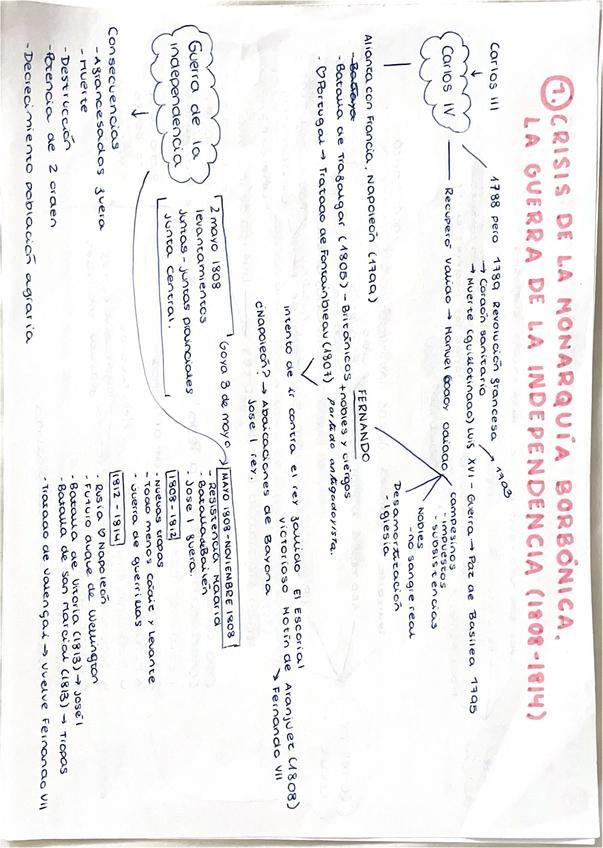 1. CRISIS DE LA MONARQUÍA BORBÓNICA.
LA GUERRA DE LA INDEPENDENCIA (1808-1814)
Carlos III
↓
Carlos IV
1788 pero 1789 Revolución francesa
→ Cordón sanitario
→ Muerte (guillotinado) Luis XVI - Guerra → Paz de Basilea 1795
→ 1793
Recuperó Valido → Manuel Godoy odiado
campesinos
- impuestos
- subsistencias
Nobles
- no sangre real
Desamortización
- Iglesia
Alianza con Francia, Napoleón (1799)
- Batalla de Trafalgar (1805) - Británicos
- Portugal → Tratado de Fontainbleau (1807)
FERNANDO
+ nobles y clérigos
partido antigodoyista.
Intento de ir contra el rey fallido El Escorial
victorioso Motín de Aranjuez (1808)
→ Fernando VII
¿Napoleón? → Abdicaciones de Bayona
José I rey.
Guerra de la
independencia
2 mayo 1808
levantamientos
Juntas - juntas provinciales
Junta Central.
Goya 3 de mayo
MAYO 1808 - NOVIEMBRE 1808
- Resistencia Madrid
- Batalla de Bailén
. José I fuera.
1808 - 1812
- Nuevas tropas
- Todo menos Cádiz y Levante
- Guerra de guerrillas
1812 - 1814
- Rusia Napoleón
- Futuro duque de Wellington
- Batalla de Vitoria (1813) → José I
- Batalla de San Marcial (1813) → Tropas
- Tratado de Valençai → Vuelve Fernando VII
↓
Consecuencias
- Afrancesados fuera
- Muerte
- Destrucción
- Potencia de 2 orden
- Decrecimiento población agraria